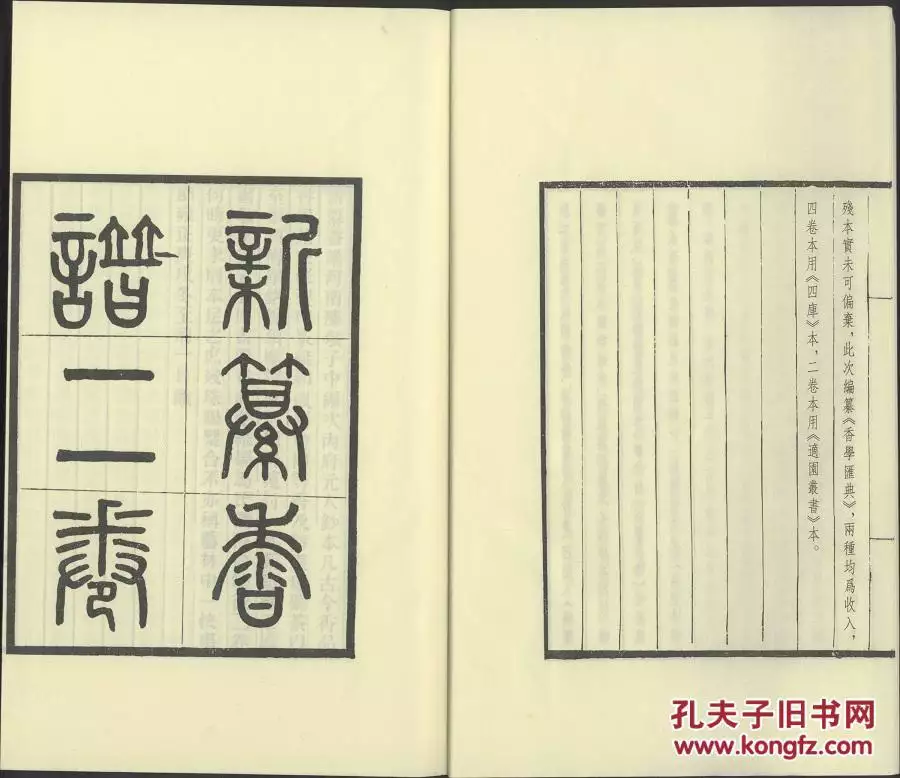 殘本實未可偏棄，此次編纂《香學匯典》，兩種均爲收入，
四卷本用《四庫》本，二卷本用《適園叢書》本。
新纂香
譜二卷
孔夫子旧书网
www.kongfz.com